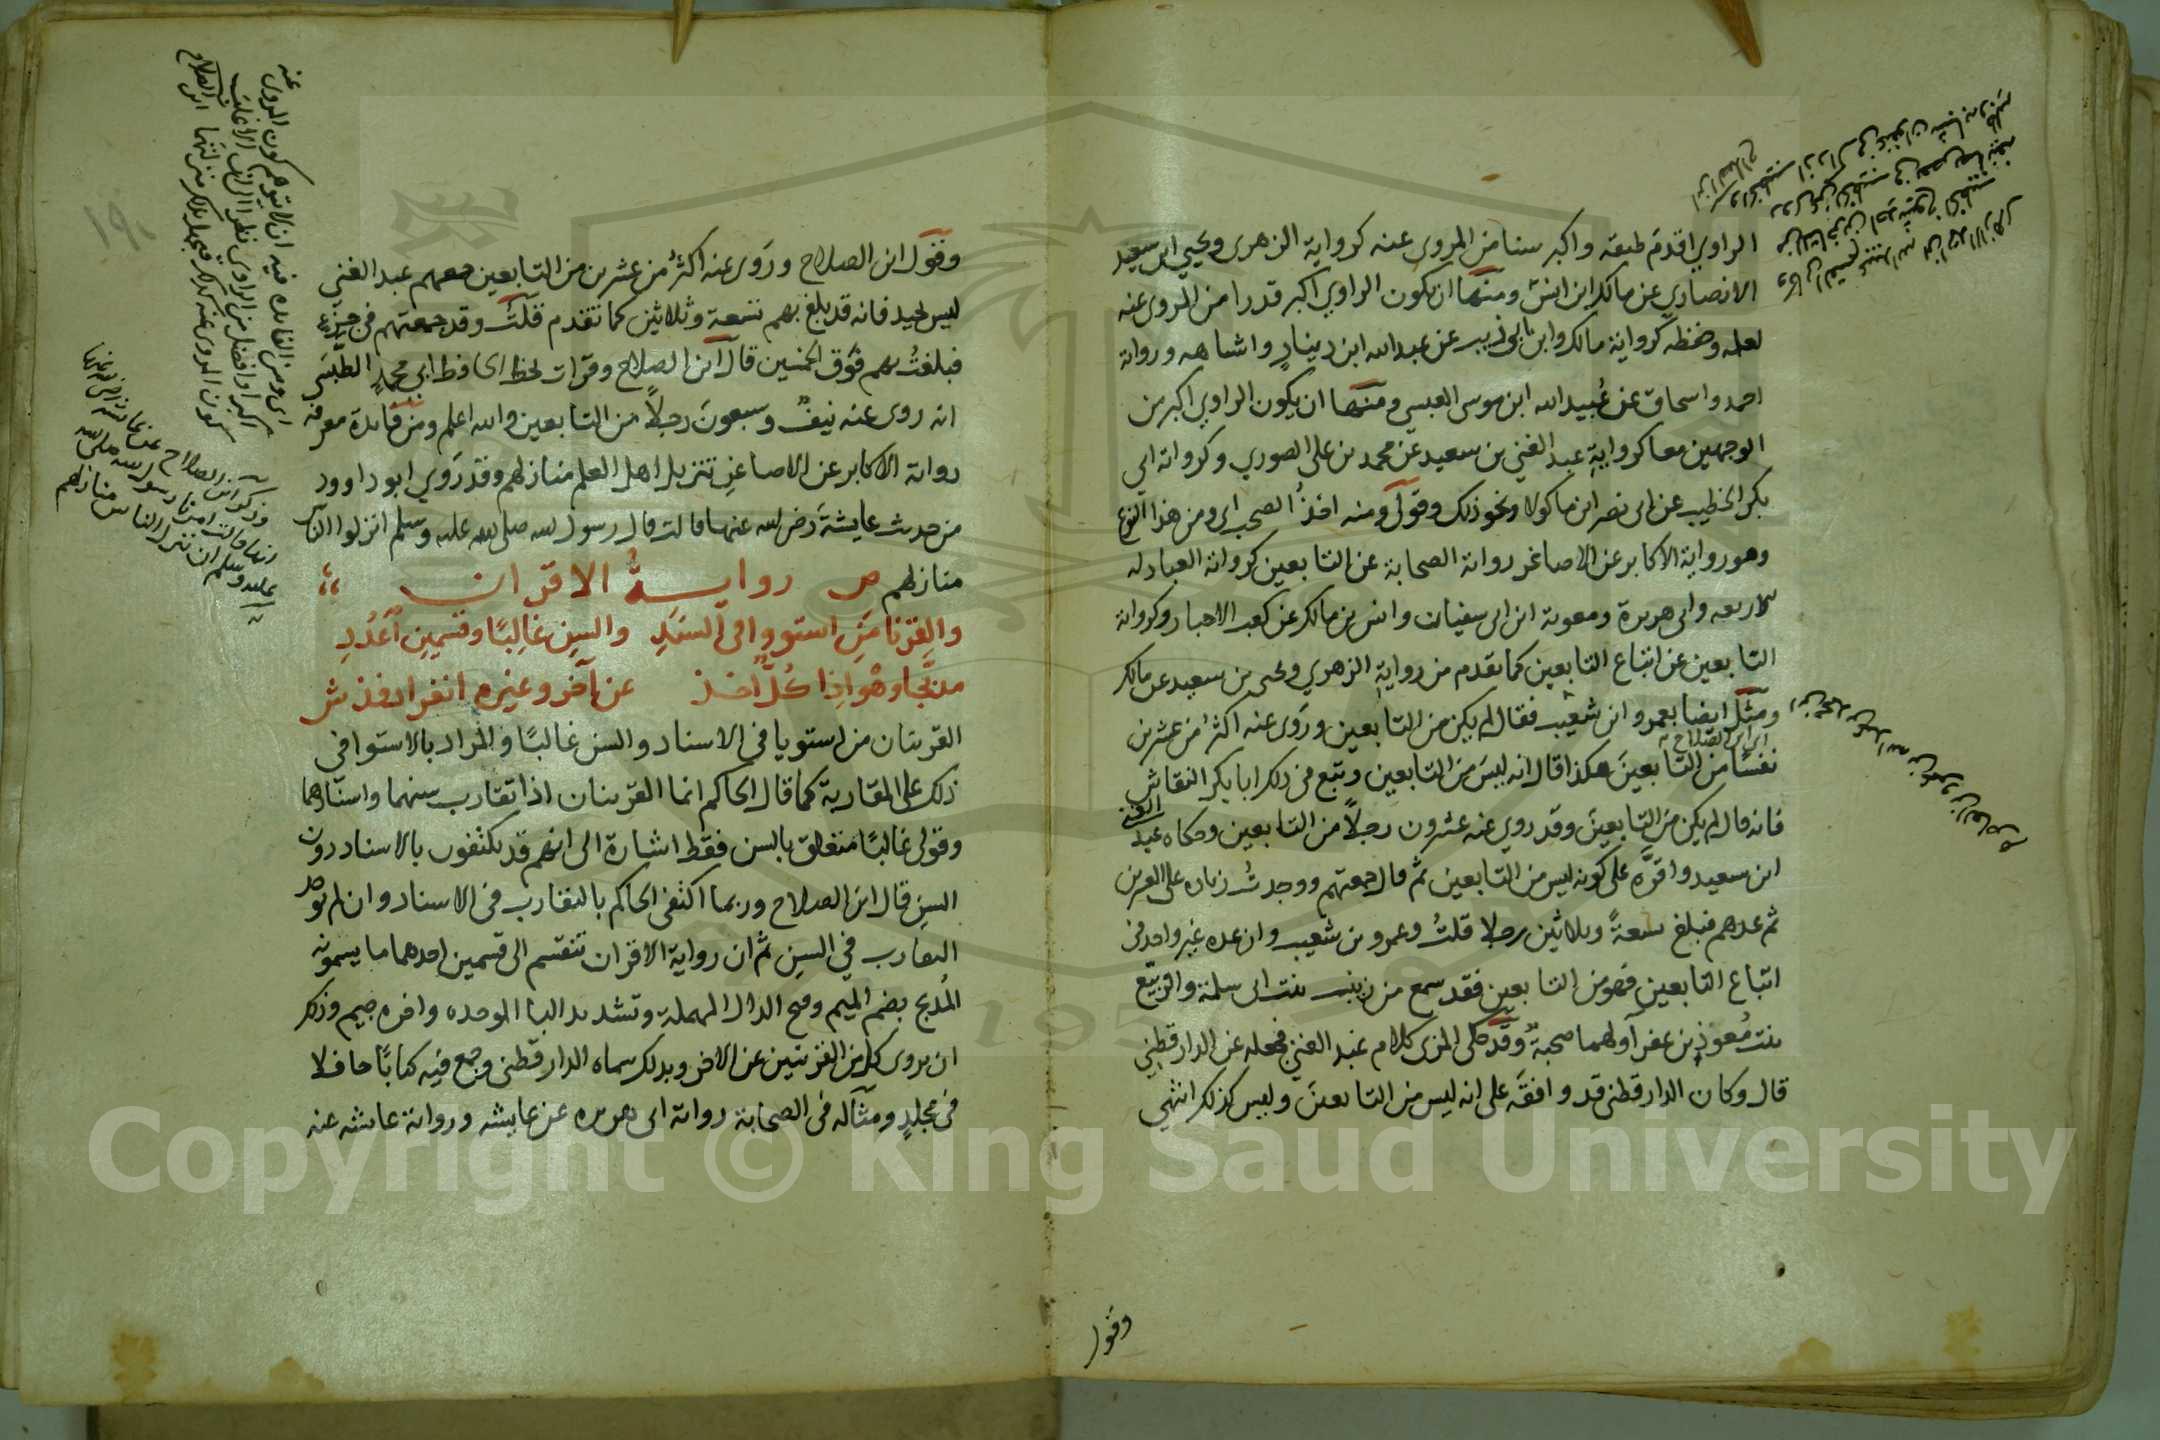 الراوي اقدم طبقه واكبر سنا من المروي عنه كرواية الزهرى ويحيى ابن سعيد
الانصاري عن مالك ابن انس ومنها ان تكون الراوي اكبر قدرا من المروى عنه
لعلمه وحفظه كرواية مالك وابن ابي ذيب عن عبدالله ابن دينار واشباهه ورواية
احمد واسحاق عن عُبيد الله ابن موسى العبسي ومنها ان يكون الراوي اكبر من
الوجهين معا كرواية عبد الغني بن سعيد عن محمد بن على الصوري وكرواية ابي
بكر الخطيب عن ابى نصر ابن ماكولا ونحو ذلك وقولى ومنه اخذُ الصحب اى ومن هذا النوع
وهو رواية الاكابر عن الاصاغر رواية الصحابة عن التابعين كرواية العبادله
الاربعه وابى هريرة ومعوية ابن ابى سفيان وانس بن مالك عن كعب الاحبار وكرواية
التابعين عن اتباع التابعين كما تقدم من رواية الزهري ويحيى بن سعيد عن مالك
ومثل ايضا بعمرو ابن شعيب فقال لم يكن من التابعين وروى عنه اكثر من عشرين
اى ابن الصلاح
نفسًا من التابعين هكذا قال انه ليس من التابعين وتبع فى ذلك ابا بكر النقاش
فانه قال لم يكن من التابعين وقد روي عنه عشرون رجلاً من التابعين وحكاه عبد الغنى
ابن سعيد واقرَّه على كونه ليس من التابعين ثم قال جمعتهم ووجدت زياده على العشرين
ثم عدهم فبلغ تسعةً وثلاثين رجلا قلتُ وعمرو بن شعيب وان عده غير واحد فى
اتباع التابعين فهو من التابعين فقد سمع من زينب بنت ابى سلمة والربيّع
بنت مُعوذ بن عفرا ولهما صحبةٌ وقد حكى المزى كلام عبد الغني فجعله عن الدارقطني
قال وكان الدارقطنى قد وافقَه على انه ليس من التابعين وليس كذلك انتهي
وقول
ابن محمد بن عبد الله بن عمرو بن العاص
ابن الصلاح
وقول ابن الصلاح وروى عنه اكثرُ من عشرين من التابعين جمعهم عبد الغني
ليس بجيد فانه قد بلغ بهم تسعة وثلاثين كما تقدم قلت وقد جمعتهم فى جزءٍ
فبلغتُ بهم فوق الخمسين قال ابن الصلاح وقرات بخط الحافظ ابي محمدٍ الطَّبَسي
انه روى عنه نيفٌ وسبعونَ رجلاً من التابعين والله اعلم ومن فايدة معرفة
رواية الاكابر عن الاصاغر تنزيل اهل العلم منازلهم وقد رَوي ابو داوود
من حديث عايشةَ رضى الله عنها قالت قال رسول الله صلى الله عليه وسلم انزلوا الناس
منازلهم ص رواية الاقران
والقرنا من استووا فى السند والسِن غالبًا وقسمين اعدُدِ
مدبَّجا وهْو اذا كُلٌّ اخذ عن آخر وغيره انفراد فذ ش
القرينان من استويا فى الاسناد والسن غالبًا والمراد بالاستوا فى
ذلك على المقاربة كما قال الحاكم انما القرينان اذا تقارب سنهما واسنادهما
وقولى غالبًا متعلق بالسن فقط اشارة الى انهم قد يكتفون بالاسناد دون
السِن قال ابن الصلاح وربما اكتفى الحاكم بالتقارب فى الاسناد وان لم يوجد
التقارب في السِن ثم ان رواية الاقران تنقسم الى قسمين احدهما ما يسمونه
المُدبج بضم الميم وفتح الدال المهملة وتشديد البا الموحده واخره جيم وذلك
ان يروى كل من القرينين عن الاخر وبذلك سماه الدارقطنى وجمع فيه كتابًا حافلا
فى مجلدٍ ومثاله فى الصحابة رواية ابى هريره عن عايشه ورواية عايشه عنه
اى ومن الفايده فيه ان لا يتوهم كون المروى عنه
اكبر وافضل من الراوى نظرا الى ان الاغلب
كون المروى عنه كذلك فيجهل بذلك منزلتهما ابن الصلاح
وذكر ابن الصلاح عن عائشة رضى الله عنها
انها قالت امرنا رسول الله صلى الله
عليه وسلم ان ننزل الناس منازلهم
١٩٠
Copyright © King Saud University
1957